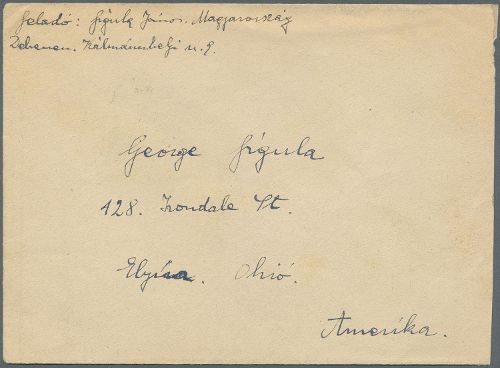 Feladó: Zsigula János. Magyarország
Debrecen. Kálmánczhelyi u. 9.
George Zsigula
128. Irondale St.
Elyria. Ohió.
Amerika.